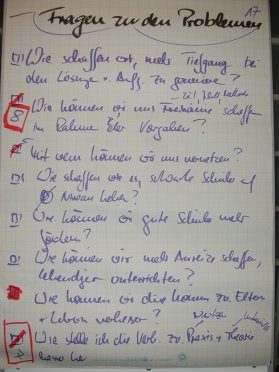 17
Fragen zu den Problemen
Wie schaffen wir, mehr Tiefgang bei
den Lösungen + Auff. zu generieren?
Zeit,
Wie können wir uns Freiräume schaffen
im Rahmen der Vorgaben?
8
Mit wem können wir uns vernetzen?
Wie schaffen wir es, schwache Schüler auf
Niveau heben?
Wie können wir gute Schüler mehr
fördern?
Wie können wir mehr Anreize schaffen,
lebendiger unterrichten?
Wie können wir die zw. Eltern
+ Lehrern verbessern?
Wie stelle ich die Verb. zw. Praxis + Theorie
her